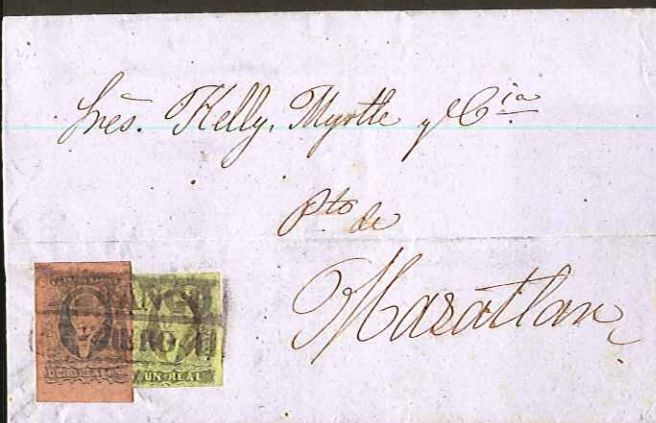 Sres. Kelly, Myrtle y Cia.
Pto de
Mazatlan
UN REAL